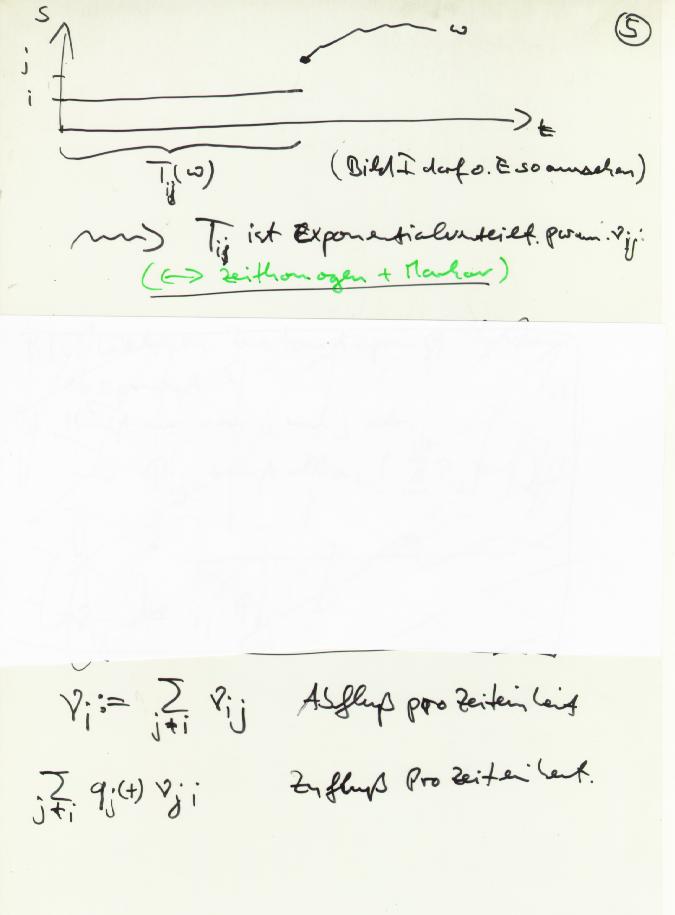 S
5
ω
j
i
t
T_ij(ω)
(Bild I darf o. E so aussehen)
⟿ T_ij ist Exponentialverteilt. param. ν_ij.
(↔ zeithomogen + Markov)
ν_i := ∑_{j≠i} ν_ij Abfluß pro Zeiteinheit
∑_{j≠i} q_j(t) ν_ji Zufluß Pro Zeiteinheit.